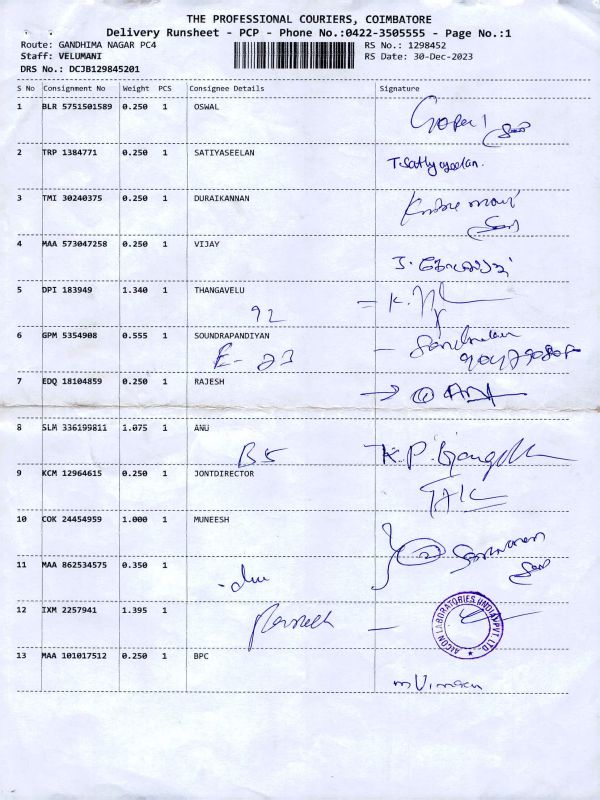 THE PROFESSIONAL COURIERS, COIMBATORE
Delivery Runsheet - PCP - Phone No.:0422-3505555 - Page No.:1
Route: GANDHIMA NAGAR PC4
RS No.: 1298452
Staff: VELUMANI
RS Date: 30-Dec-2023
DRS No.: DCJB129845201
S No Consignment No Weight PCS Consignee Details Signature
1 BLR 5751501589 0.250 1 OSWAL
2 TRP 1384771 0.250 1 SATIYASEELAN
3 TMI 30240375 0.250 1 DURAIKANNAN
4 MAA 573047258 0.250 1 VIJAY
5 DPI 183949 1.340 1 THANGAVELU
92
6 GPM 5354908 0.555 1 SOUNDRAPANDIYAN
E-23
7 EDQ 18104859 0.250 1 RAJESH
8 SLM 336199811 1.075 1 ANU
B5
9 KCM 12964615 0.250 1 JONTDIRECTOR
10 COK 24454959 1.000 1 MUNEESH
11 MAA 862534575 0.350 1
12 IXM 2257941 1.395 1
AICON LABORATORIES (INDIA) PVT. LTD.
13 MAA 101017512 0.250 1 BPC